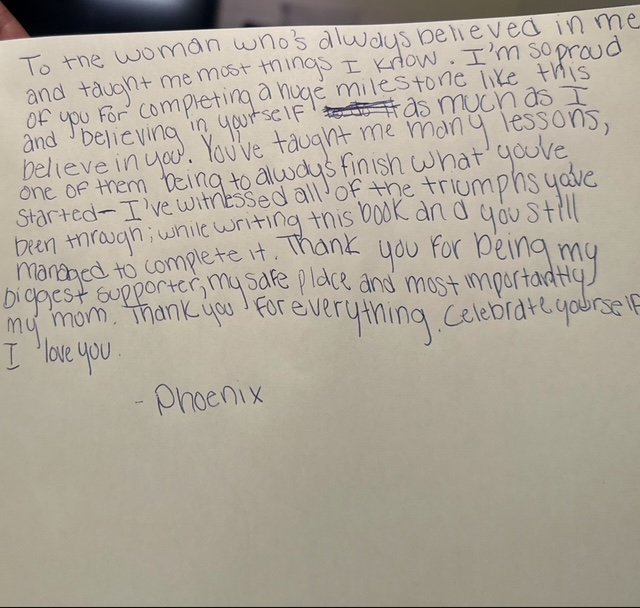 To the woman who's always believed in me
and taught me most things I know. I'm so proud
of you for completing a huge milestone like this
and believing in yourself as much as I
believe in you. You've taught me many lessons,
one of them being to always finish what you've
started- I've witnessed all of the triumphs you've
been through; while writing this book and you still
managed to complete it. Thank you for being my
biggest supporter, my safe place and most importantly
my mom. Thank you for everything. Celebrate yourself
I love you.
- Phoenix